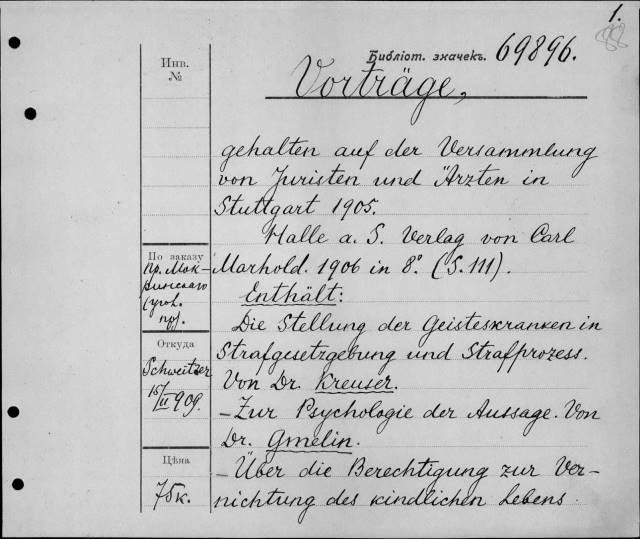 1.
Библіот. значекъ. 69896.
Vorträge,
gehalten auf der Versammlung
von Juristen und Ärzten in
Stuttgart 1905.
Halle a. S. Verlag von Carl
Marhold. 1906 in 8° (S. 111).
Enthält:
Die Stellung der Geisteskranken in
Strafgesetzgebung und Strafprozess.
Von Dr. Kreuser.
- Zur Psychologie der Aussage. Von
Dr. Gmelin.
- Über die Berechtigung zur Ver-
nichtung des kindlichen Lebens.
Инв.
№
По заказу
пр. Мок-
ринскаго
(угол.
пр).
Откуда
Schweitzer
15/II 909.
Цѣна
75к.